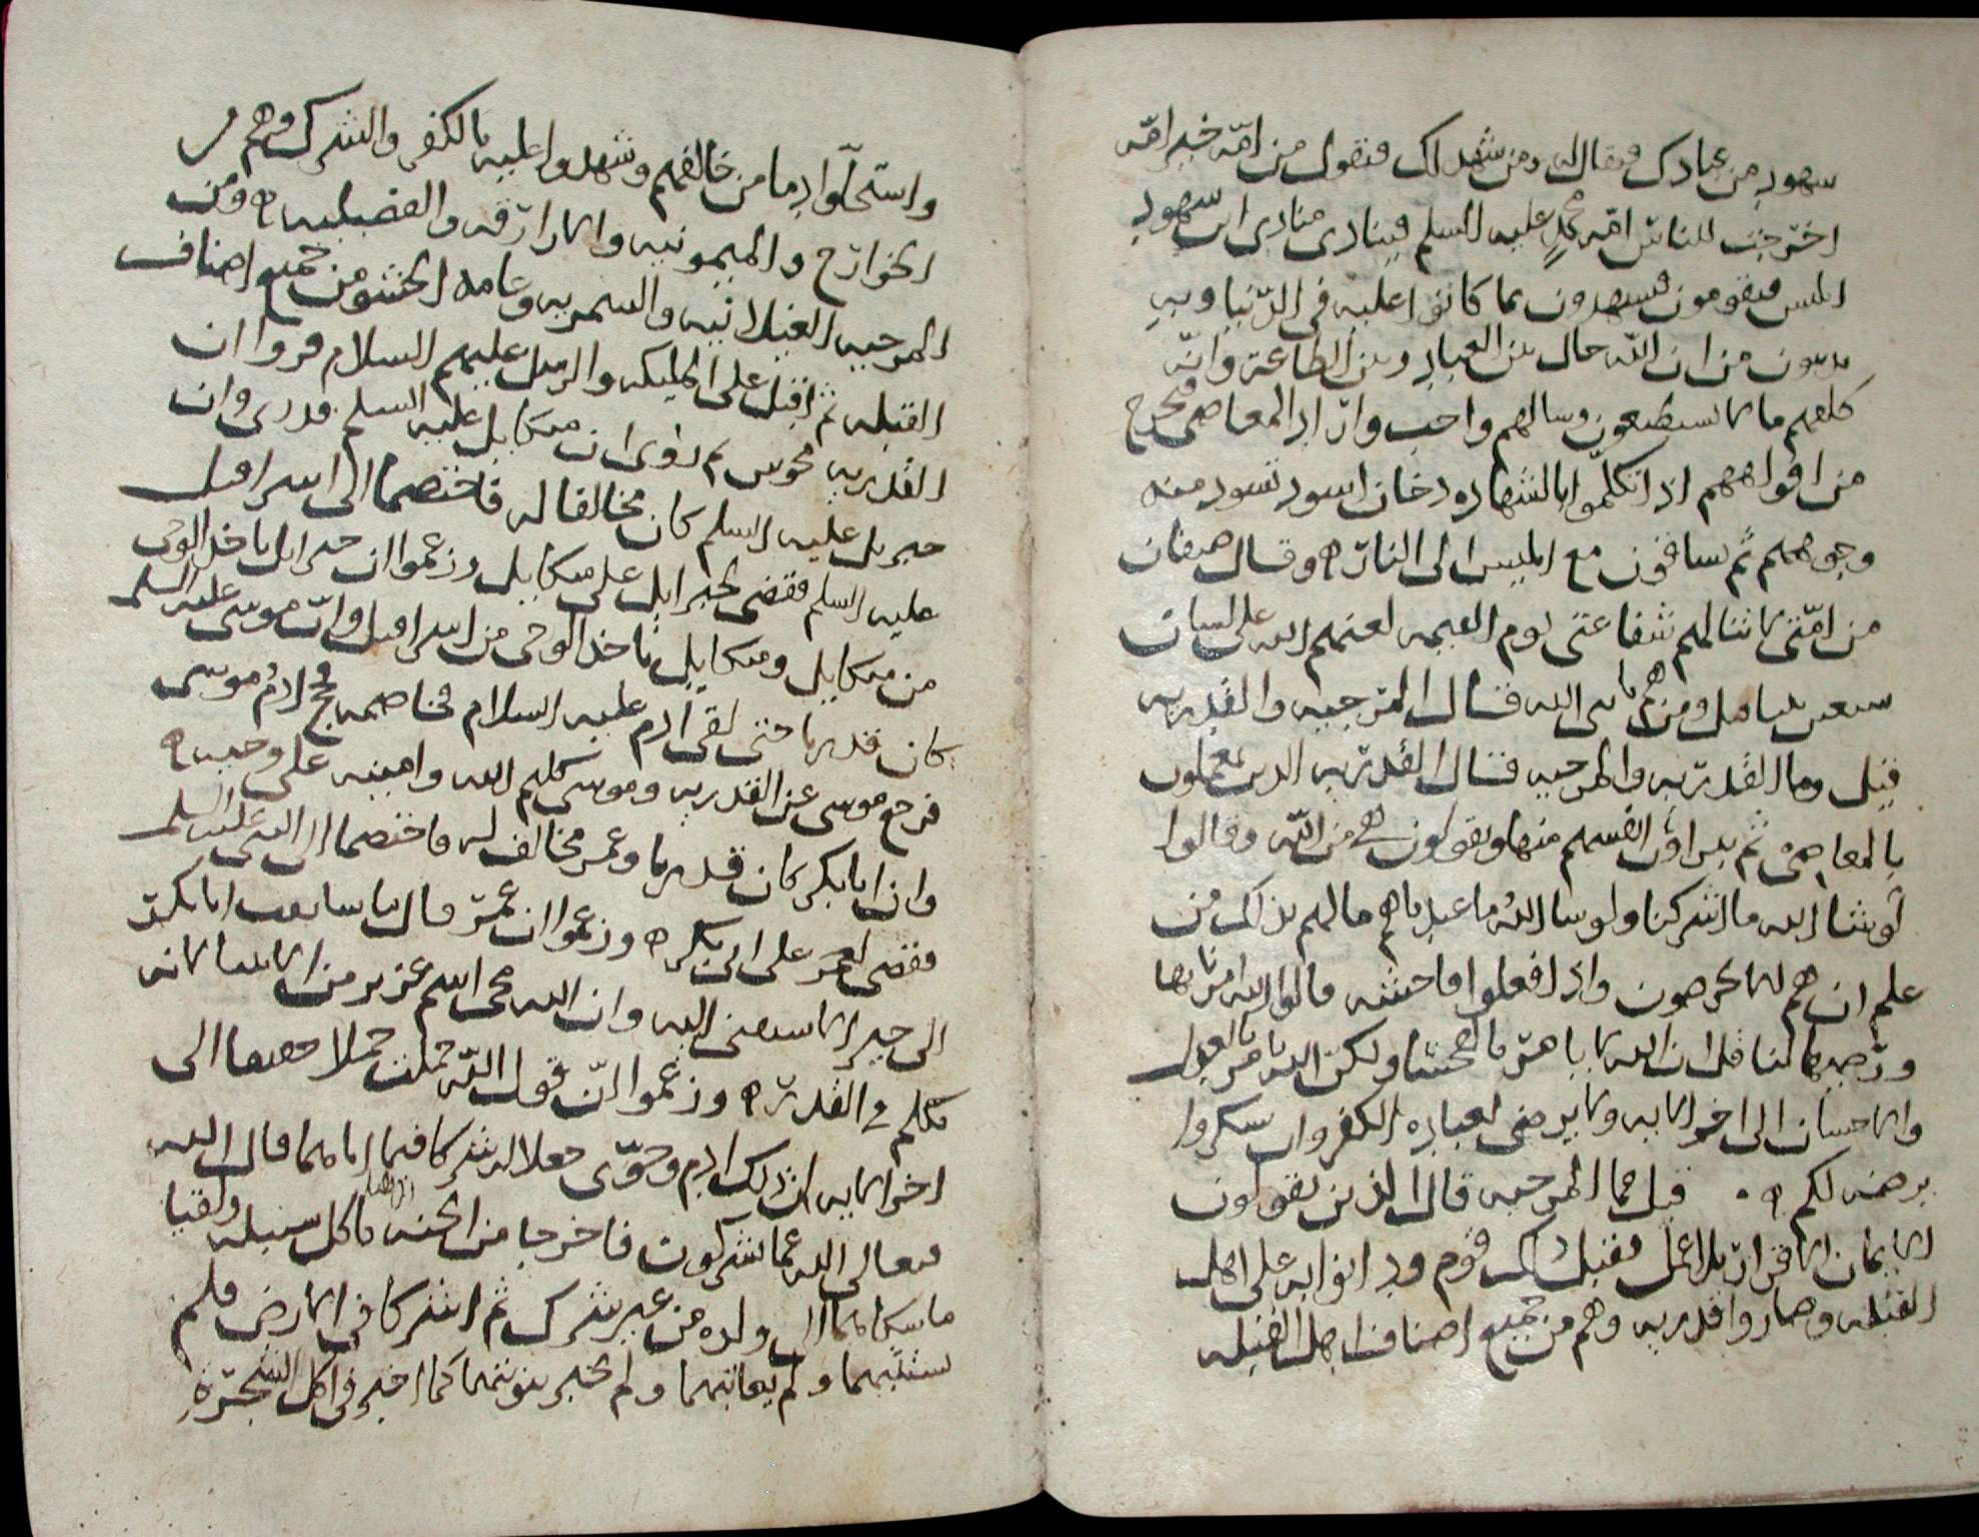 سهود من عبادك فيقال له ومن شهداك فيقول من امّه خير امّه
اخرجت للناس امّه محمدٍ عليه السلم فينادى منادى اين سهود
ابليس فيقومون فيسهدون بما كانوا عليه فى الدّنيا وبه
يدينون من ان الله حال بين العباد وبين الطاعة وانّه
كلفهم ما لا يستطيعون وسالهم واحب واراد المعاصى فيخرج
من افواههم اذا تكلّموا بالشهاده دخان اسود تسود منه
وجوههم ثم يساقون مع ابليس الى النار ه وقال صنفان
من امّتى لا تنالهم شفاعتى يوم القيمه لعنهم الله على لسان
سبعين نبيا قيل ومن هم يا نبى الله فقال المرجيه والقدريه
قيل وما القدريّه والمرجيه فقال القدريّه الذين يعملون
بالمعاصىْ ثم يبراون انفسهم منها ويقولون هى من الله وقالوا
لو شا الله ما اشركنا ولو شا اللهُ ما عبدناهم ما لهم بذلك من
علم ان هم الا يخرصون واذا فعلوا فاحشه قالوا الله امرنا بها
ورضيها لنا قل ان الله لا يامر بالفحشا ولكن الله يامر بالعدل
والاحسان الى اخر الايه ولا يرضى لعباده الكفر وان تشكروا
يرضه لكم ه . قيل فما المرجيه قال الذين يقولون
الايمان الاقرار بلا عمل فقبل ذلك قوم ودانوا به على اهل
القبله وصاروا قدريه وهم من جميع اصناف اهل القبله
واستحلّوا دما من خالفهم وشهدوا عليه بالكفر والشرك وهم من
الخوارج والميمونيه والازارقه والفضيليه ه ومن
المرجيه الغيلانيه والسمريه وعامه الحشو من جميع اصناف
القبله ثم اقبل على المليكه والرسل عليهم السلام فروا ان
القدريه مجوس ثم روى ان ميكايل عليه السلم قدرى وان
جبريل عليه السلم كان مخالفا له فاختصما الى اسرافيل
عليه السلم فقضى لجبرايل على ميكايل وزعموا ان جبرايل ياخذ الوحى
من ميكايل وميكايل ياخذ الوحى من اسرافيل وانّ موسى عليه السلم
كان قدريا حتى لقى ادم عليه السلام فخاصمه فحج ادمُ موسى
فرجع موسى عن القدريه وموسى كليم الله وامينه على وحيه ه
وان ابا بكر كان قدريا وعمر مخالف له فاختصما الى النبى عليه السلم
فقضى لعمر على ابى بكر ه وزعموا ان عمر قال ما سابقت ابا بكر
الى خير الا سبقنى اليه وان الله محى اسم عزير من الانبيا لانه
تكلم فى القدر ه وزعموا انّ قول الله حملت حملا خفيفا الى
اخر الايه ان ذلك ادم وحوّى جعلا له شركا فيما اتاهما قال الله
فتعالى الله عما يشركون فاخرجا من الجنه باكل سنبله ولقيا
ما لقيا ولده من غير شرك ثم اشركا فى الارض فلم
يستتبهما ولم يعاتبهما ولم يخبر بتوبتهما كما اخبر فى اكل الشجرة